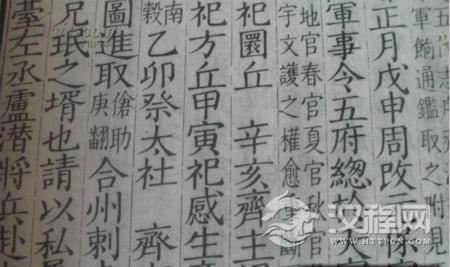 軍餉通鑑取之附見
正月戊申周改元保
軍事令五府總於天
地官春官夏官秋官
宇文護之權愈重斷
祀圜丘 辛亥齊主
祀方丘甲寅祀感生
南
穀
乙卯祭太社 齊
圖進取傖助庚翻合州刺
兄珉之壻也請以私
臺左丞盧潛將兵赴
汉程网
WWW.HTTPCN.COM